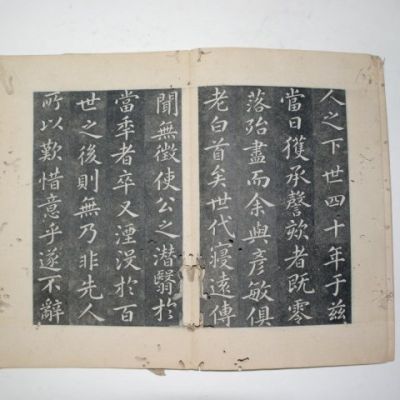 人之下世四十年于茲
當日獲承謦欬者既零
落殆盡而余與彥敏俱
老白首矣世代寖遠傳
聞無徵使公之潛翳於
當秊者卒又湮沒於百
世之後則無乃非先人
所以歎惜意乎遂不辭